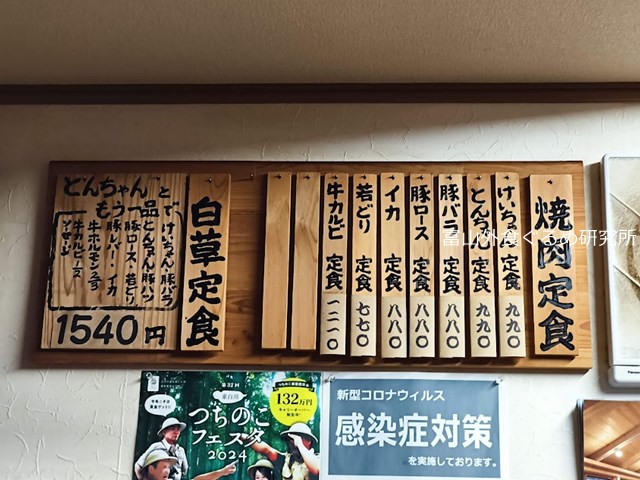 焼肉定食
けいちゃん定食 九九〇
とんちゃん定食 九九〇
豚バラ 定食 八八〇
豚ロース 定食 八八〇
イカ 定食 八八〇
若どり 定食 七七〇
牛カルビ 定食 一二一〇
白草定食
とんちゃんと
もう一品で
けいちゃん・豚バラ
とんちゃん・豚ハツ
豚ロース、若どり
豚レバー・イカ
牛ホルモン
牛カルビ
ソーセージ
1540円
富山外食ぐるめ研究所
第32回
東白川
つちのこ
フェスタ
2024
132万円
新型コロナウィルス
感染症対策
を実施しております。
Panasonic